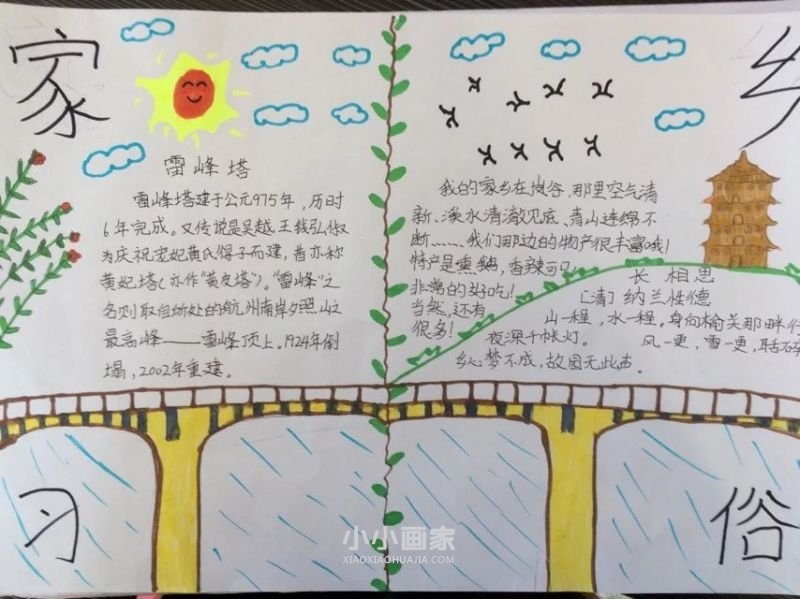 家
乡
雷峰塔
雷峰塔建于公元975年，历时
6年完成。又传说是吴越王钱弘俶
为庆祝宠妃黄氏得子而建，昔亦称
黄妃塔（亦作"黄皮塔"）。"雷峰"之
名则取自所处的杭州南岸夕照山之
最高峰——雷峰顶上。1924年倒
塌，2002年重建。
我的家乡在岚谷，那里空气清
新、溪水清澈见底、青山连绵不
断……我们那边的物产很丰富哦！
特产是熏鹅，香辣可口，
非常的好吃！
当然，还有
很多！
长相思
［清］纳兰性德
山一程，水一程。身向榆关那畔行
夜深千帐灯。 风一更，雪一更，聒碎
乡心梦不成，故园无此声。
习
俗
小小画家
XIAOXIAOHUAJIA.COM